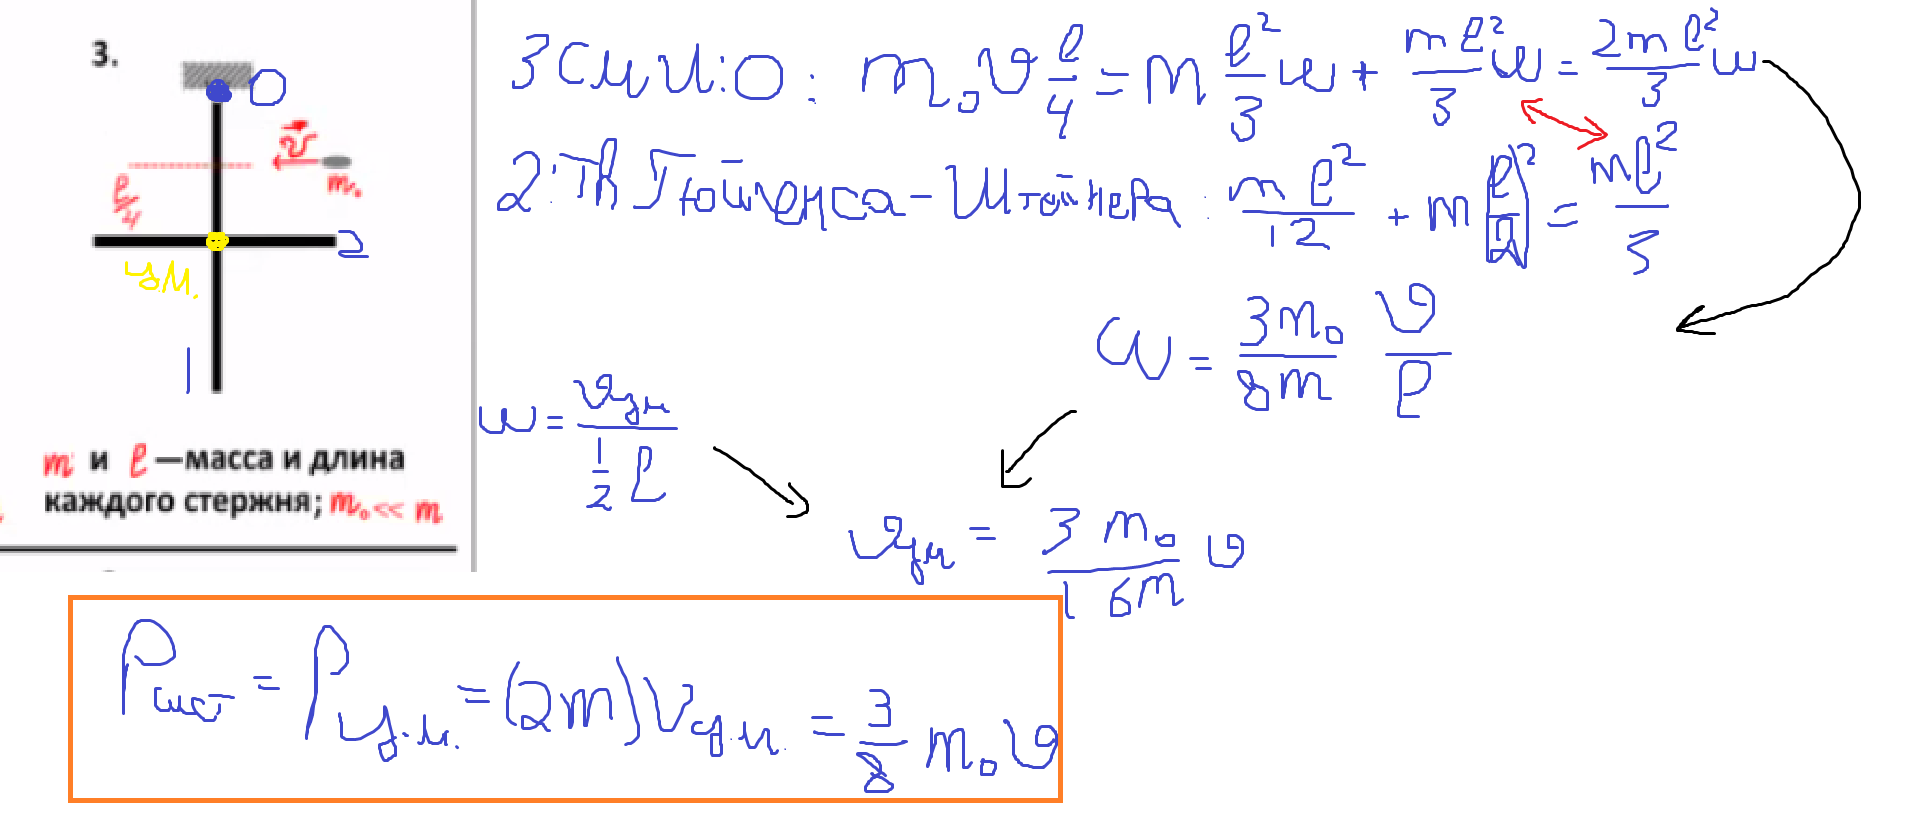 3.
O
v
m₀
l/4
2
ц.м.
1
m и l —масса и длина
каждого стержня; m₀ << m
ЗСМИ:O: m₀ v l/4 = m l²/3 w + m l²/3 w = 2 m l²/3 w
2: Th Гюйгенса-Штейнера: m l²/12 + m (l/2)² = m l²/3
w = 3m₀/8m v/l
w = vцм / 1/2 l
vцм = 3 m₀/16m v
Pсист = Pц.м. = (2m) Vц.м. = 3/8 m₀ v